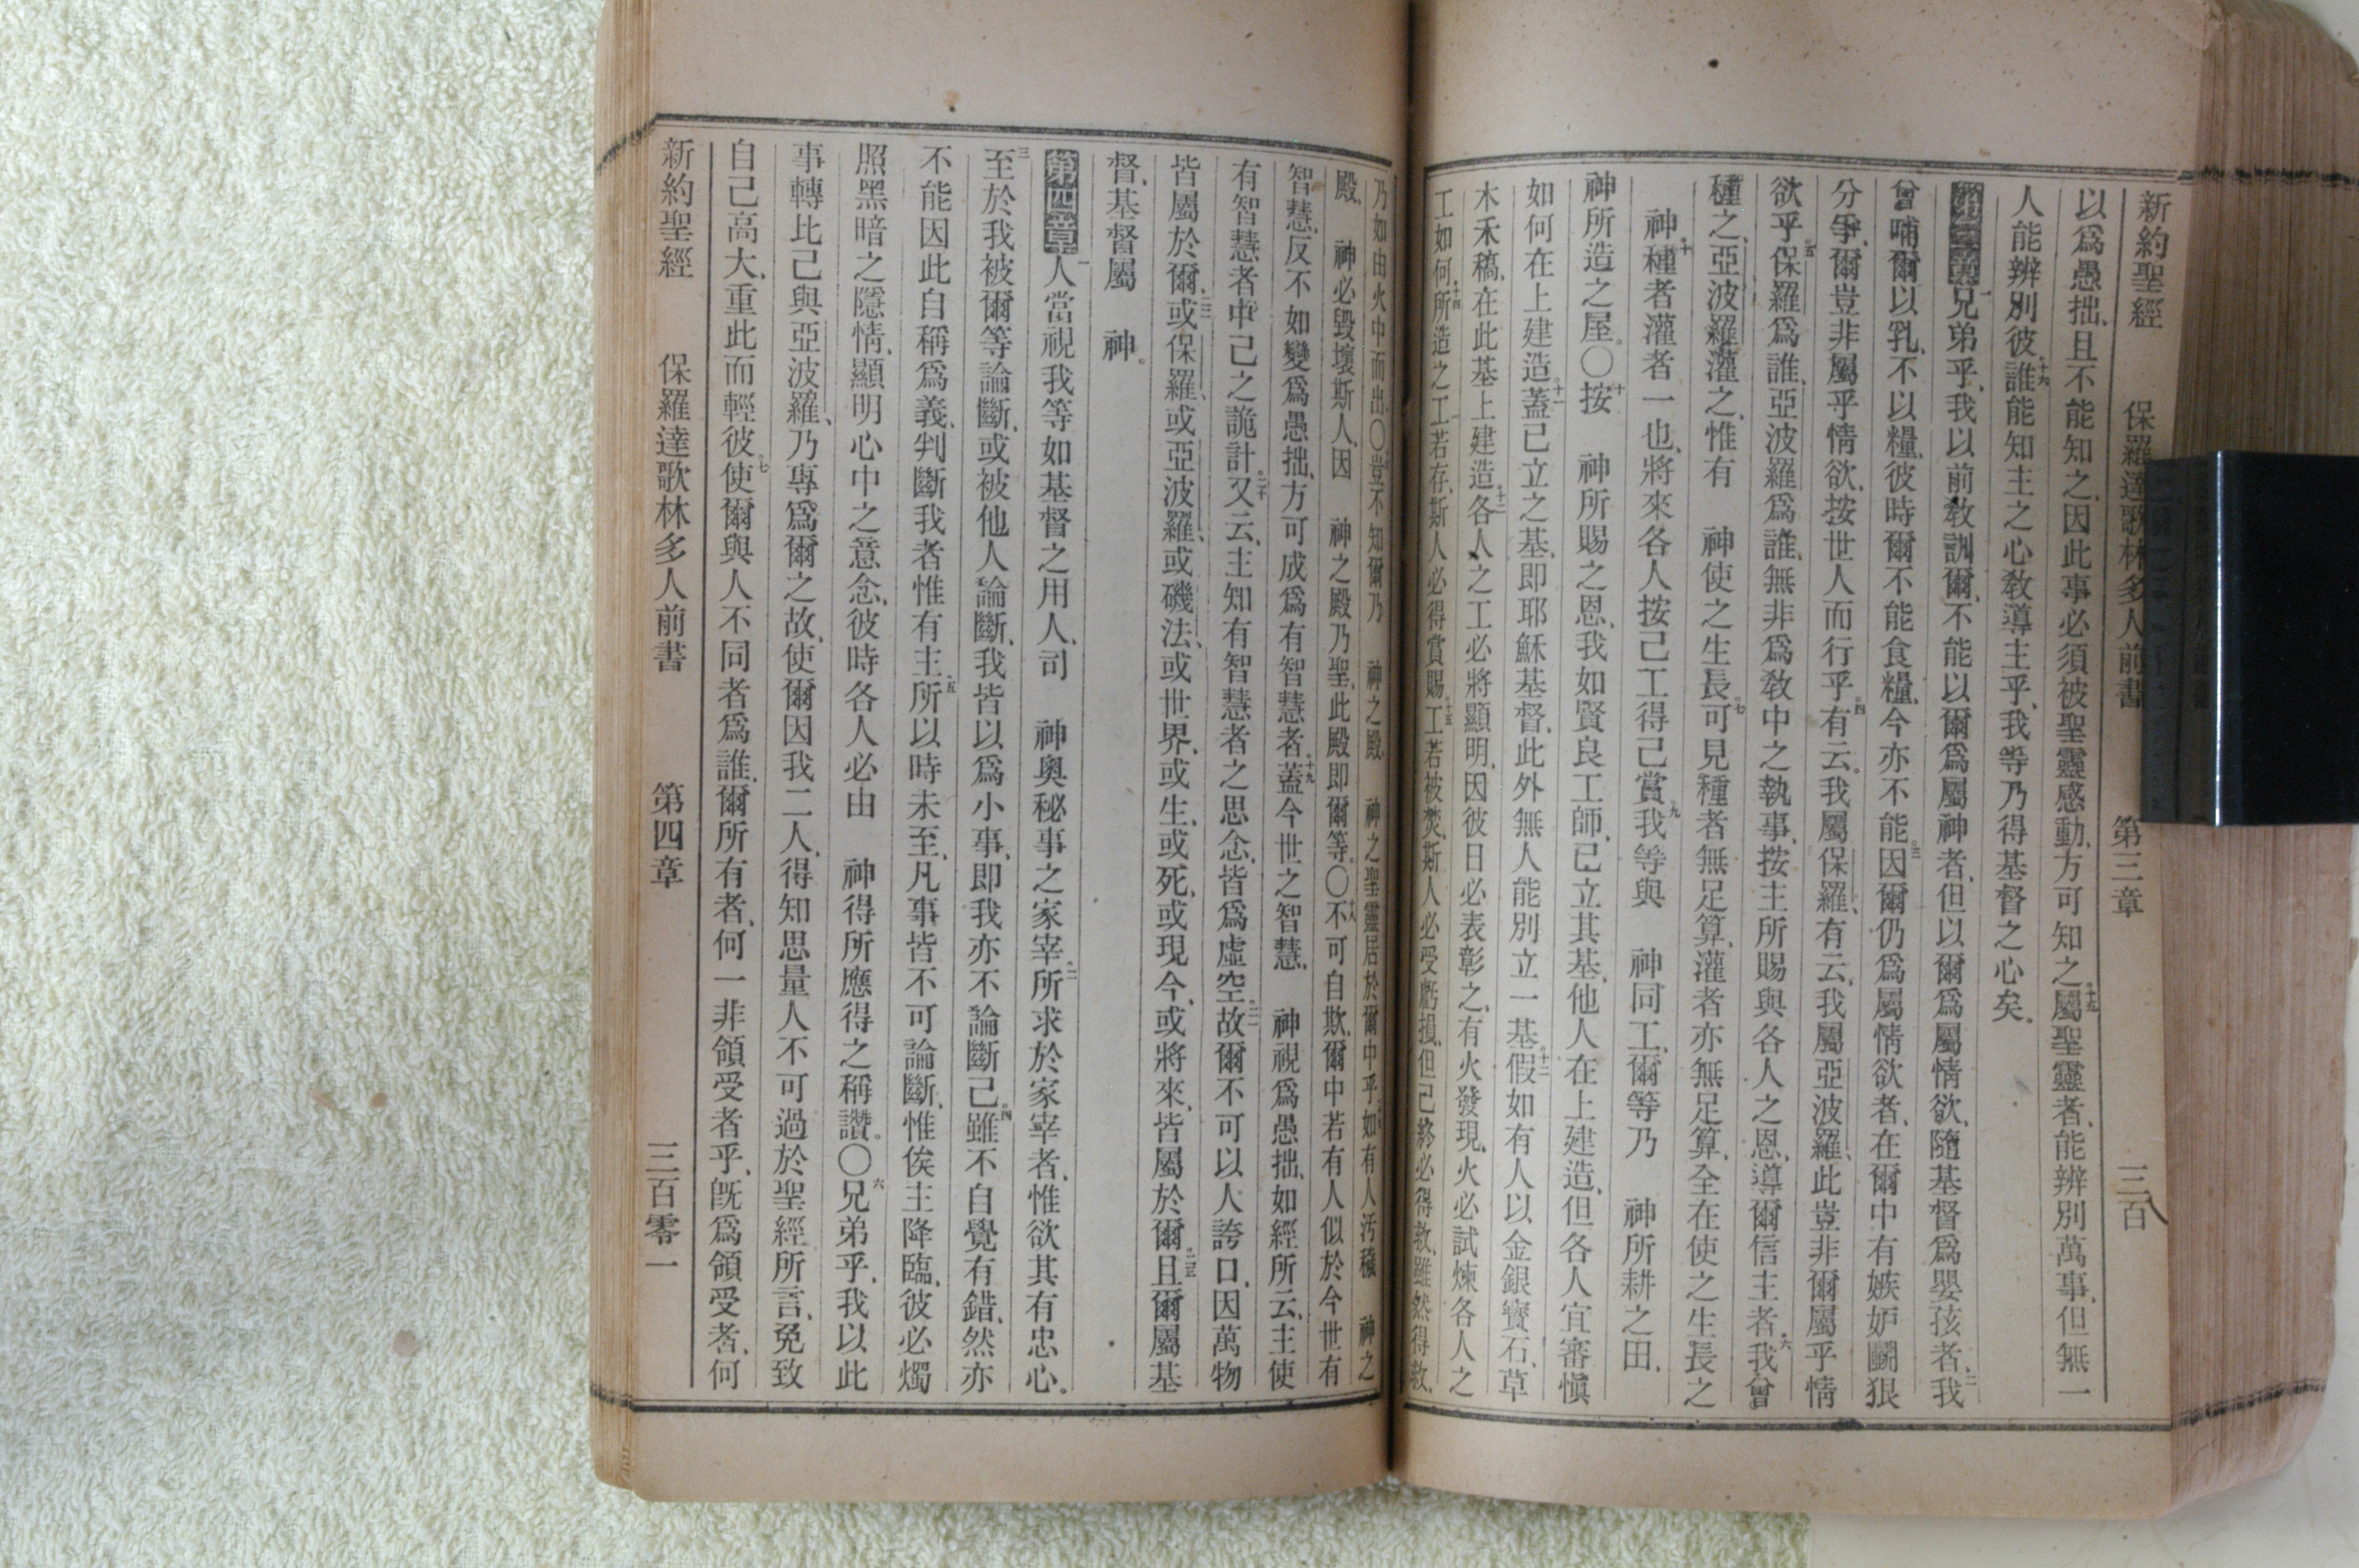 新約聖經 保羅達歌林多人前書 第三章 三百
以爲愚拙、且不能知之、因此事必須被聖靈感動、方可知之、十五屬聖靈者、能辨別萬事、但無一
人能辨別彼、十六誰能知主之心敎導主乎、我等乃得基督之心矣。
第三章一兄弟乎、我以前敎訓爾、不能以爾爲屬神者、但以爾爲屬情欲、隨基督爲嬰孩者、二我
曾哺爾以乳、不以糧、彼時爾不能食糧、今亦不能、三因爾仍爲屬情欲者、在爾中有嫉妒鬬狠
分爭、爾豈非屬乎情欲、按世人而行乎、四有云、我屬保羅、有云、我屬亞波羅、此豈非爾屬乎情
欲乎、五保羅爲誰、亞波羅爲誰、無非爲敎中之執事、按主所賜與各人之恩、導爾信主者、六我曾
種之、亞波羅灌之、惟有 神使之生長、七可見種者無足算、灌者亦無足算、全在使之生長之
神、八種者灌者一也、將來各人按己工得己賞、九我等與 神同工、爾等乃 神所耕之田、
神所造之屋。〇十按 神所賜之恩、我如賢良工師、已立其基、他人在上建造、但各人宜審愼
如何在上建造、十一蓋已立之基、卽耶穌基督、此外無人能別立一基、十二假如有人以金銀寶石、草
木禾稿、在此基上建造、十三各人之工必將顯明、因彼日必表彰之、有火發現、火必試煉各人之
工如何、十四所造之工若存、斯人必得賞賜、十五工若被焚、斯人必受虧損、但己終必得救、雖然得救、
乃如由火中而出。〇豈不知爾乃 神之殿、 神之聖靈居於爾中乎、如有人汚穢 神之
殿、 神必毀壞斯人、因 神之殿乃聖、此殿卽爾等。〇十八不可自欺、爾中若有人似於今世有
智慧、反不如變爲愚拙、方可成爲有智慧者、十九蓋今世之智慧、 神視爲愚拙、如經所云、主使
有智慧者中己之詭計、二十又云、主知有智慧者之思念、皆爲虛空、二一故爾不可以人誇口、因萬物
皆屬於爾、二二或保羅、或亞波羅、或磯法、或世界、或生、或死、或現今、或將來、皆屬於爾、二三且爾屬基
督、基督屬 神。
第四章一人當視我等如基督之用人、司 神奧秘事之家宰、二所求於家宰者、惟欲其有忠心。
三至於我被爾等論斷、或被他人論斷、我皆以爲小事、卽我亦不論斷己、四雖不自覺有錯、然亦
不能因此自稱爲義、判斷我者惟有主、五所以時未至、凡事皆不可論斷、惟俟主降臨、彼必燭
照黑暗之隱情、顯明心中之意念、彼時各人必由 神得所應得之稱讚。〇六兄弟乎、我以此
事轉比己與亞波羅、乃專爲爾之故、使爾因我二人、得知思量人不可過於聖經所言、免致
自己高大、重此而輕彼、七使爾與人不同者爲誰、爾所有者、何一非領受者乎、旣爲領受者、何
新約聖經 保羅達歌林多人前書 第四章 三百零一